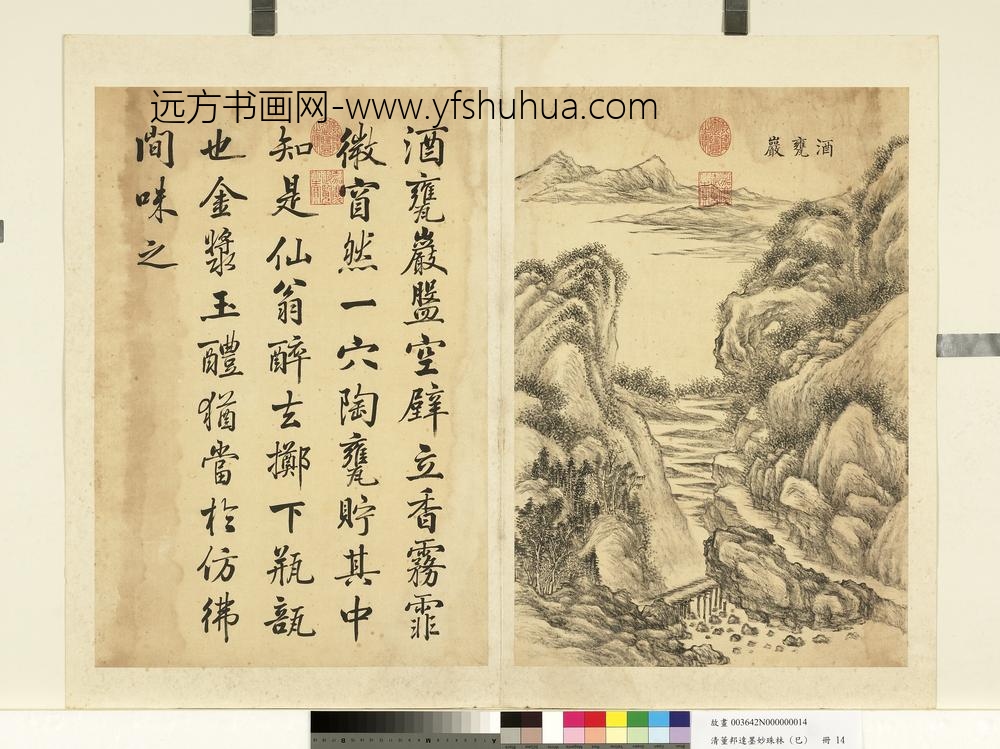 远方书画网-www.yfshuhua.com
酒甕巖
酒甕巖盤空壁立香霧霏
微窅然一穴陶甕貯其中
知是仙翁醉去擲下瓶瓿
也金漿玉醴猶當於仿彿
間味之
故畫 003642N000000014
清董邦達墨妙珠林（巳） 冊 14